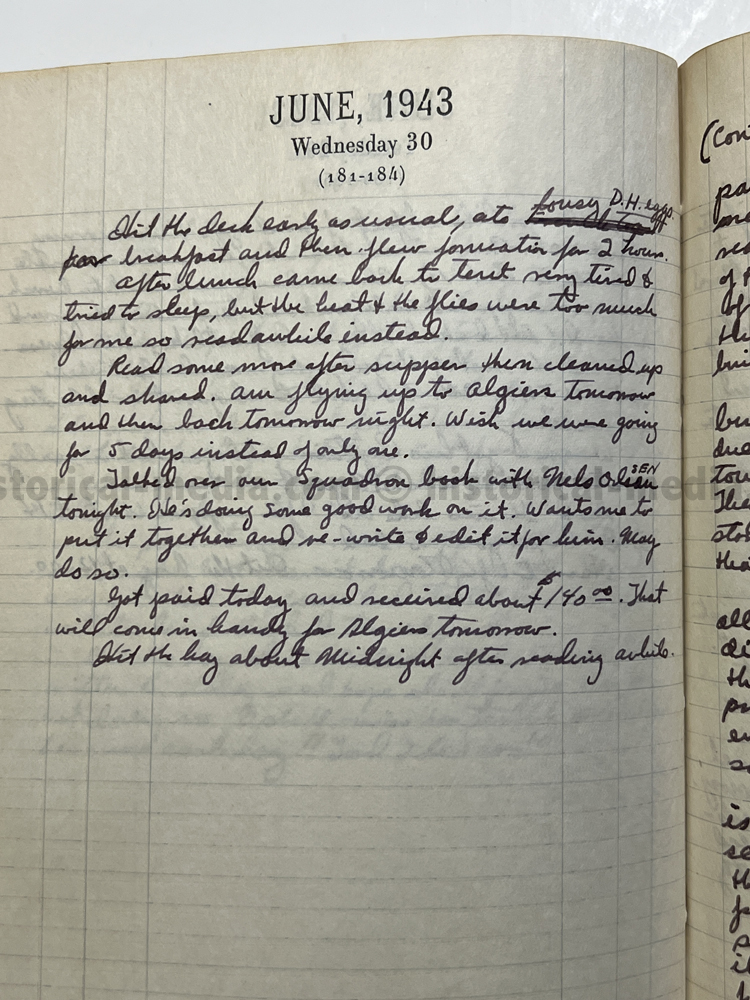 JUNE, 1943
Wednesday 30
(181-184)
Hit the deck early as usual, ate lousy D.H. eggs.
for breakfast and then flew formation for 2 hours.
After lunch came back to tent very tired &
tried to sleep, but the heat & the flies were too much
for me so read awhile instead.
Read some more after supper then cleaned up
and shaved. Am flying up to Algiers tomorrow
and then back tomorrow night. Wish we were going
for 5 days instead of only one.
Talked over our Squadron book with Nels Olsen SEN
tonight. He's doing some good work on it. Wants me to
put it together and re-write & edit it for him. May
do so.
Got paid today and received about $140.00. That
will come in handy for Algiers tomorrow.
Hit the hay about Midnight after reading awhile.
(Con
pa
of
of
the
bu
due
tow
The
sto
tha
all
di
th
pu
en
is
se